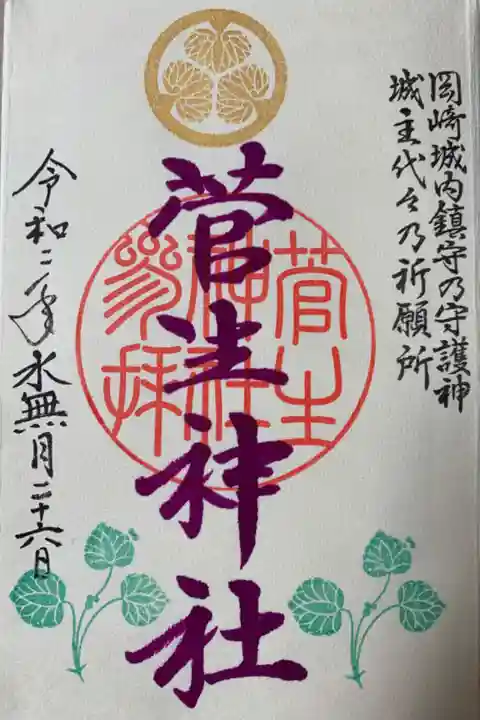 岡崎城内鎮守乃守護神
城主代々乃祈願所
菅生神社
菅生
神社
参拝
令和二年水無月二十六日